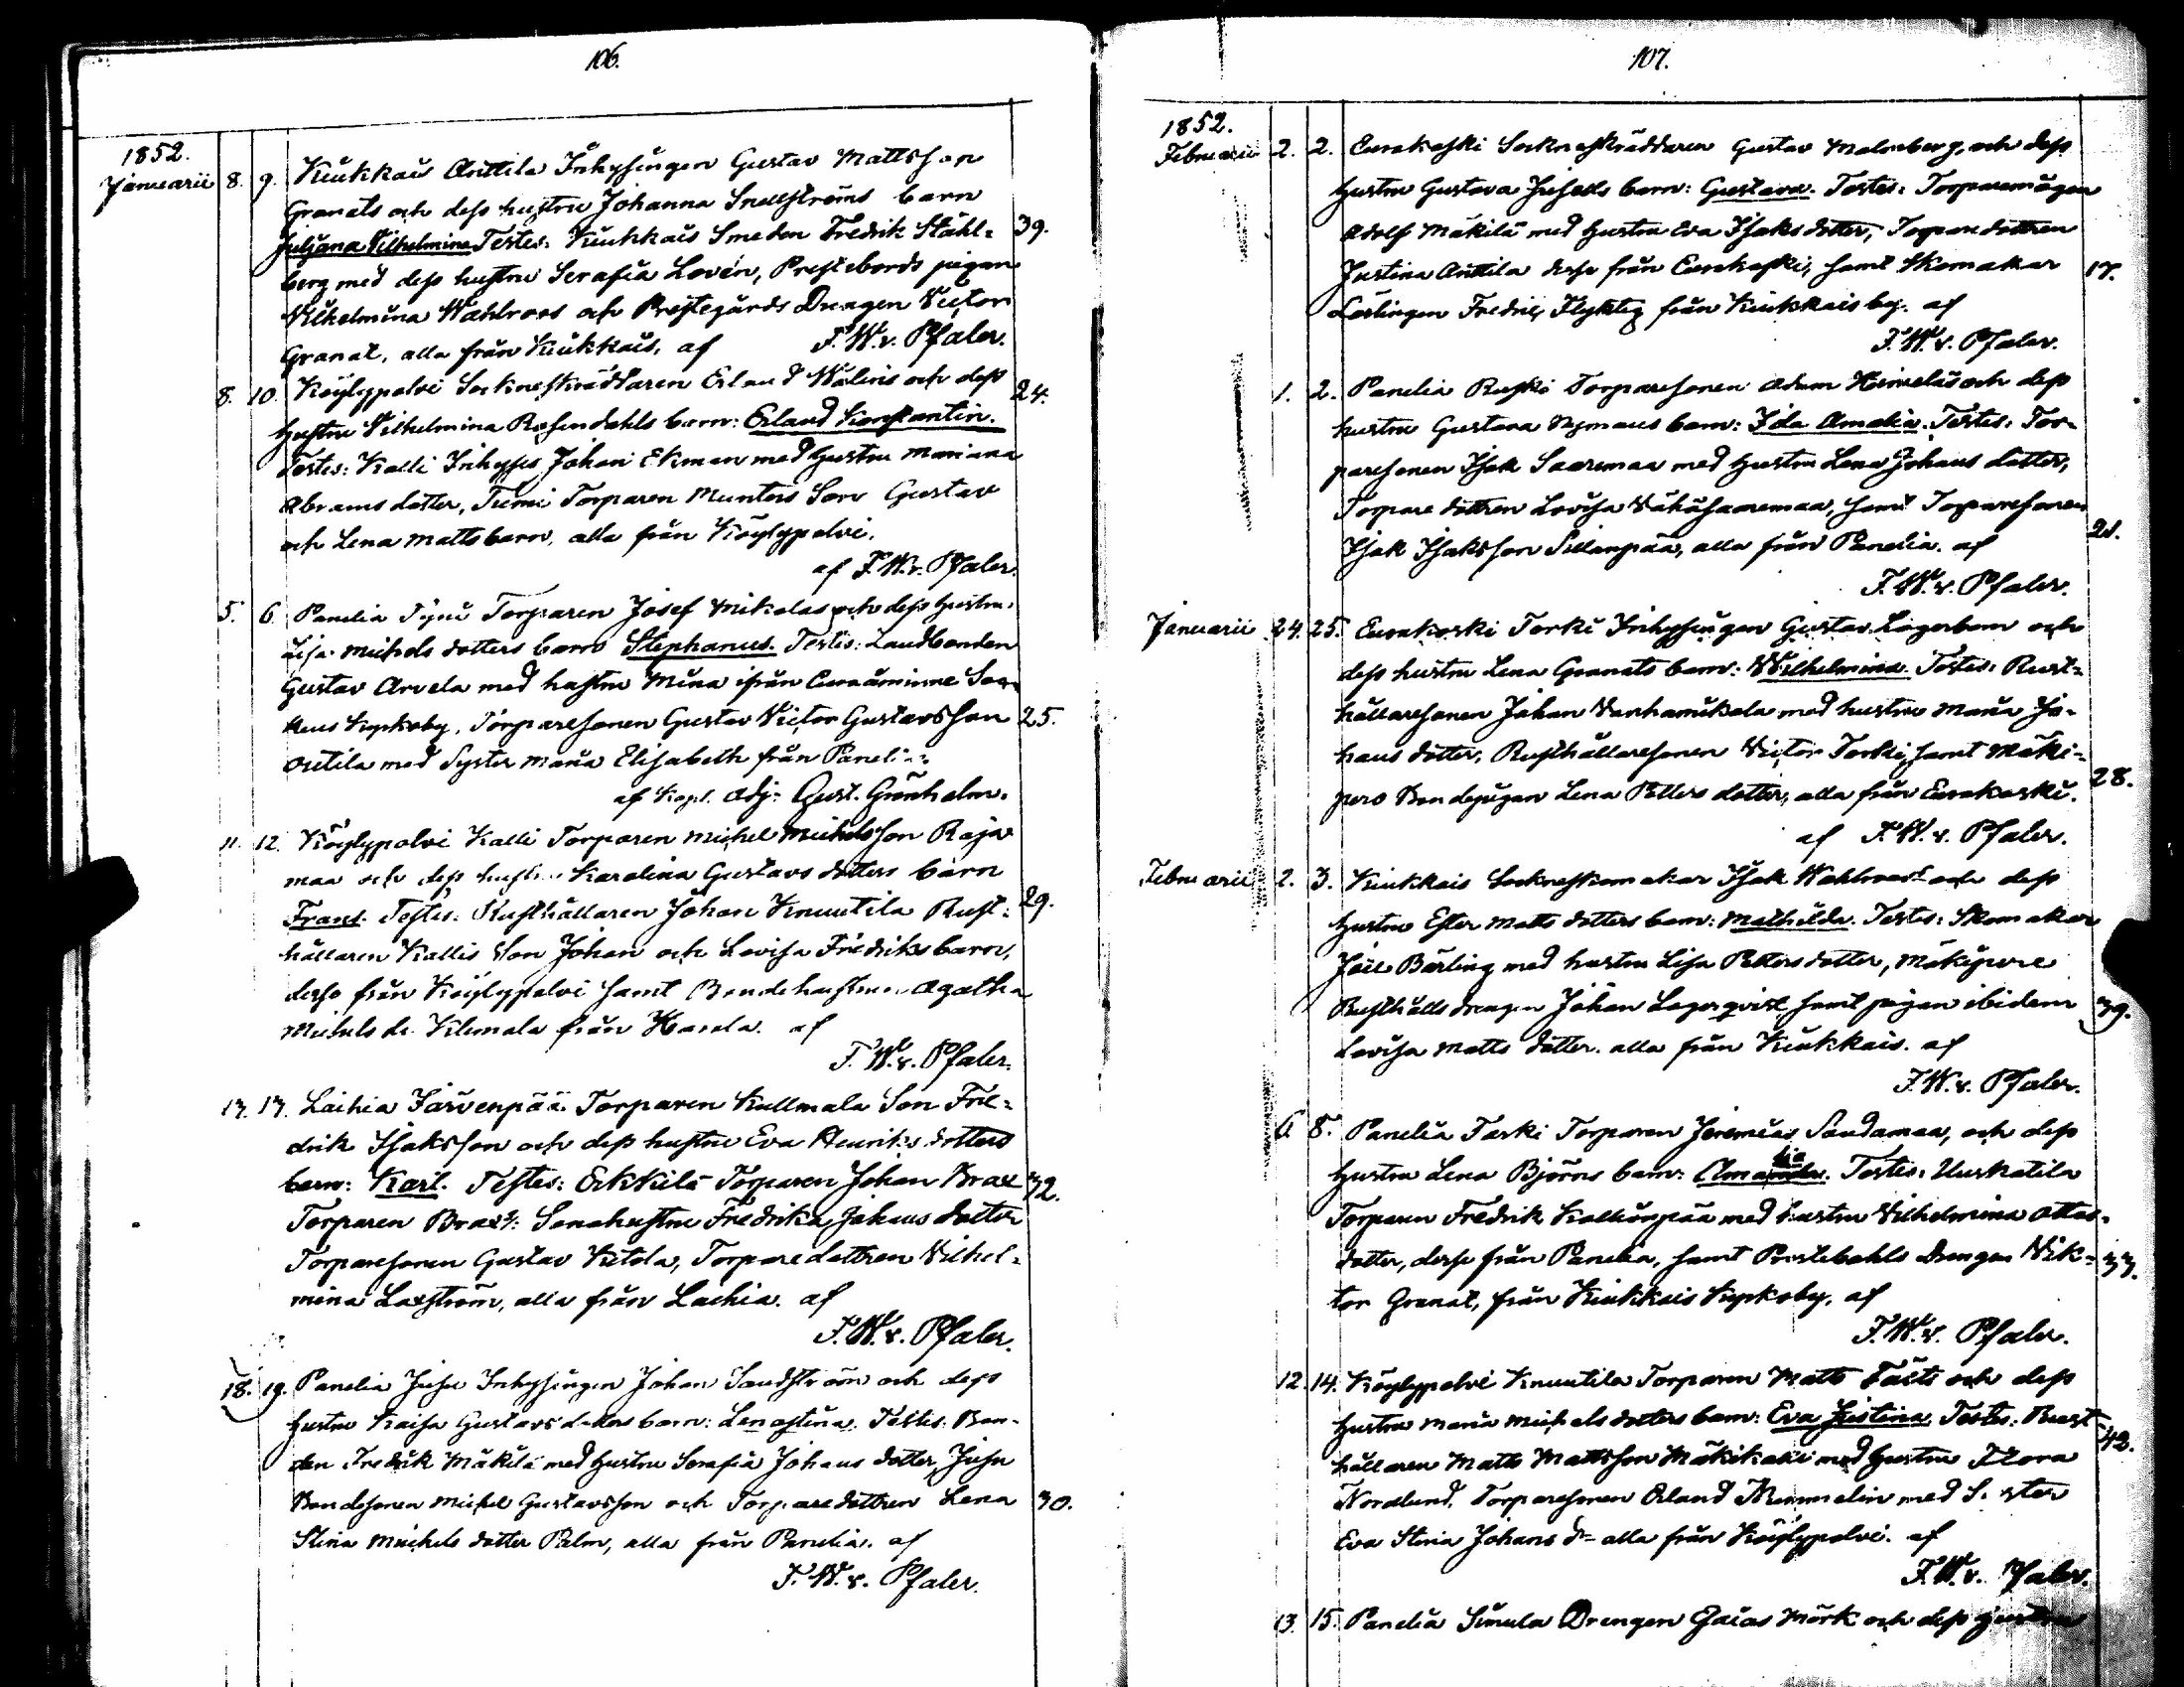 106.
1852.
Januarii 8. 9. Kiukkais Anttila Inhysingen Gustav Mattsson
Granats och dess hustru Johanna Snellströms barn
Juljana Vilhelmina Testes: Kiukkais Smeden Fredrik Ståhl= 39.
berg med dess hustru Serafia Lovén, Prestebords pigan
Vilhelmina Wahlroos och Prestegårds Drengen Victor
Granat, alla från Kiukkais. af F. W. v. Pfaler.
8. 10. Köylypolvi Sockneskräddaren Erland Wälins och dess 24.
hustru Vilhelmina Rosendahls barn: Erland Konstantin.
Testes: Kalli Inhyses Johan Ekman med hustru Mariana
Abrams dotter, Tuomi Torparen Munters Son Gustav
och Lena Matts barn, alla från Köylypolvi.
af F. W. v. Pfaler.
5. 6. Panelia Tyni Torparen Josef Mikolas och dess hustru
Lisa Michels dotters barn Stephanus. Testes: Landbonden
Gustav Arvela med hustru Mina ifrån Euraåminne Soc=
kens Kyrkoby, Torparesonen Gustav Victor Gustavsson 25.
Outila med Syster Maria Elisabeth från Panelia.
af Kapl. Adj: Gust. Grönholm.
11. 12. Köylypolvi Kalli Torparen Michel Michelsson Raja
maa och dess hustru Karolina Gustavs dotters barn
Frans. Testes: Rusthållaren Johan Knuutila Rust= 29.
hållaren Kallis Son Johan och Lovisa Fredriks barn,
desse från Köylypolvi samt Bondehustrun Agatha
Michels dr. Klemala från Harola. af
F. W. v. Pfaler.
17. 17. Laihia Järvenpää Torparen Kullmala Son Fre=
drik Isaksson och dess hustru Eva Henriks dotters
barn: Karl. Testes: Erkkilä Torparen Johan Brax 32.
Torparen Brax's Sonahustru Fredrika Johans dotter
Torparesonen Gustav Ketola, Torparedottren Vilhel=
mina Laxström, alla från Laihia. af
F. W. v. Pfaler.
18. 19. Panelia Jusu Inhysingen Johan Sandström och dess
hustru Kaisa Gustavs dotters barn: Lenastina. Testes: Bon=
den Fredrik Mäkilä med hustru Serafia Johans dotter, Jusu
Bondesonen Michel Gustavsson och Torparedottren Lena 30.
Stina Michels dotter Palm, alla från Panelia. af
F. W. v. Pfaler.
107.
1852.
Februarii 2. 2. Eurakoski Sockneskräddaren Gustav Malmberg, och dess
hustru Gustava Jusells barn: Gustava. Testes: Torparemågen
Adolf Mäkilä med hustru Eva Isaks dotter, Torparedottren
Justina Anttila desse från Eurakoski, samt Skomakar 17.
Lärlingen Fredric Flyktig från Kiukkais by. af
F. W. v. Pfaler.
1. 2. Panelia Ruski Torparesonen Adam Heineläs och dess
hustru Gustava Nymans barn: Ida Amalia. Testes: Tor=
paresonen Isak Saaremaa med hustru Lena Johans dotter,
Torpare dottren Lovisa Vähäsaaremaa, samt Torparesonen
Isak Isaksson Sillanpää, alla från Panelia. af 21.
F. W. v. Pfaler.
Januarii 24. 25. Eurakoski Torki Inhysingen Gustav Lagerbom och
dess hustru Lena Granats barn: Wilhelmina. Testes: Rust=
hållaresonen Johan Vanhamikola med hustru Maria Jo=
hans dotter, Rusthållaresonen Victor Torki, samt Mäki=
pero Bondepigan Lena Petters dotter, alla från Eurakoski. 28.
af F. W. v. Pfaler.
Februarii 2. 3. Kiukkais Socknesskomakar Isak Wahlroos och dess
hustru Ester Matts dotters barn: Mathilda. Testes: Skomakar
Joel Bärling med hustru Lisa Petters dotter, Mäkipere
Rusthålls drengen Johan Lagerqvist samt pigan ibidem 39.
Lovisa Matts dotter. alla från Kiukkais. af
F. W. v. Pfaler.
6. 8. Panelia Taski Torparen Jeremias Sandamaa, och dess
hustru Lena Björns barn: Amanda lia. Testes: Uuskatila
Torparen Fredrik Kalliorpää med hustru Vilhelmina Ottos=
dotter, desse från Panelia, samt Prestebohls Drengen Vik= 33.
tor Granat, från Kiukkais Kyrkoby. af
F. W. v. Pfaler.
12. 14. Köylypolvi Knuutila Torparen Matts Fälts och dess
hustru Maria Michels dotters barn: Eva Justina. Testes: Rust=
hållaren Matts Mattsson Mäkikalli med hustru Flora 42.
Nordlund, Torparesonen Erland Nummelin med Syster
Eva Stina Johans dr alla från Köylypolvi. af
F. W. v. Pfaler.
13. 15. Panelia Simula Drengen Esaias Mörk och dess hustru